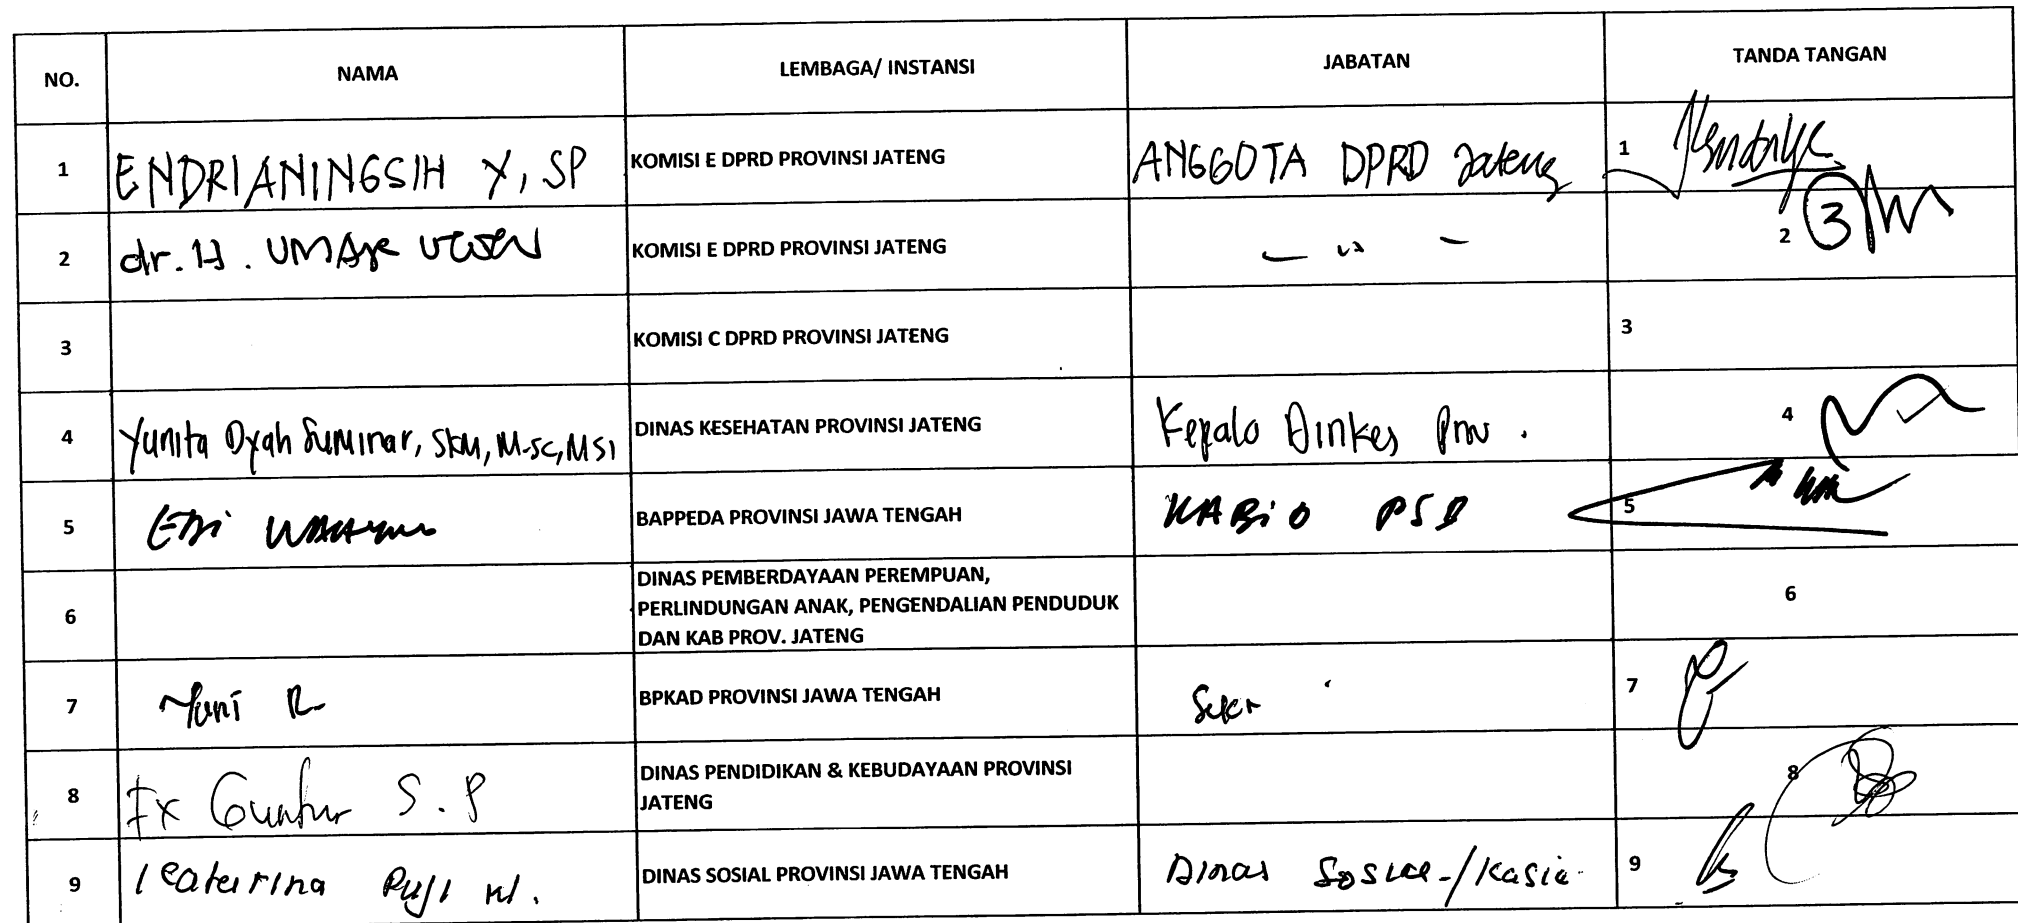 NO. NAMA LEMBAGA/ INSTANSI JABATAN TANDA TANGAN
1 ENDRIANINGSIH Y, SP KOMISI E DPRD PROVINSI JATENG ANGGOTA DPRD Jateng 1
2 dr. H. UMAR UTOYO KOMISI E DPRD PROVINSI JATENG — ıı — 2 3
3 KOMISI C DPRD PROVINSI JATENG 3
4 Yunita Dyah Suminar, SKM, M.Sc, MSi DINAS KESEHATAN PROVINSI JATENG Kepala Dinkes Prov. 4
5 EDi BAPPEDA PROVINSI JAWA TENGAH KABiD 5
DINAS PEMBERDAYAAN PEREMPUAN,
6 PERLINDUNGAN ANAK, PENGENDALIAN PENDUDUK 6
DAN KAB PROV. JATENG
7 Yuni R BPKAD PROVINSI JAWA TENGAH Sekr 7
8 Fx Guntur S.P DINAS PENDIDIKAN & KEBUDAYAAN PROVINSI 8
JATENG
9 Katerina Puji DINAS SOSIAL PROVINSI JAWA TENGAH Dinas Sosial/Kasie 9